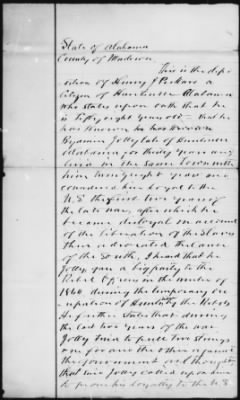 State of Alabama
County of Madison
This is the depo
sition of Henry J
Citizen of Huntsville Alabama
who states upon oath that he
is fifty eight years old - that he
has known
Benjamin Jolley late of
Alabama, for thirty years
lived in the same town with
him years
considered him loyal to the
U S the first two years of
the late war, after which he
became disloyal on account
of the liberation of the Slaves
then advocated the cause
of the South, I heard that he
Jolley gave a big party to the
Rebel Officers in the winter of
1864 during the temporary oc
cupation of Huntsville by Rebels
He further States that during
the last two years of the war
Jolley tried to pull two strings
one for and the other against
the government and thought
that said Jolley called upon him
to prove his loyalty to the U S